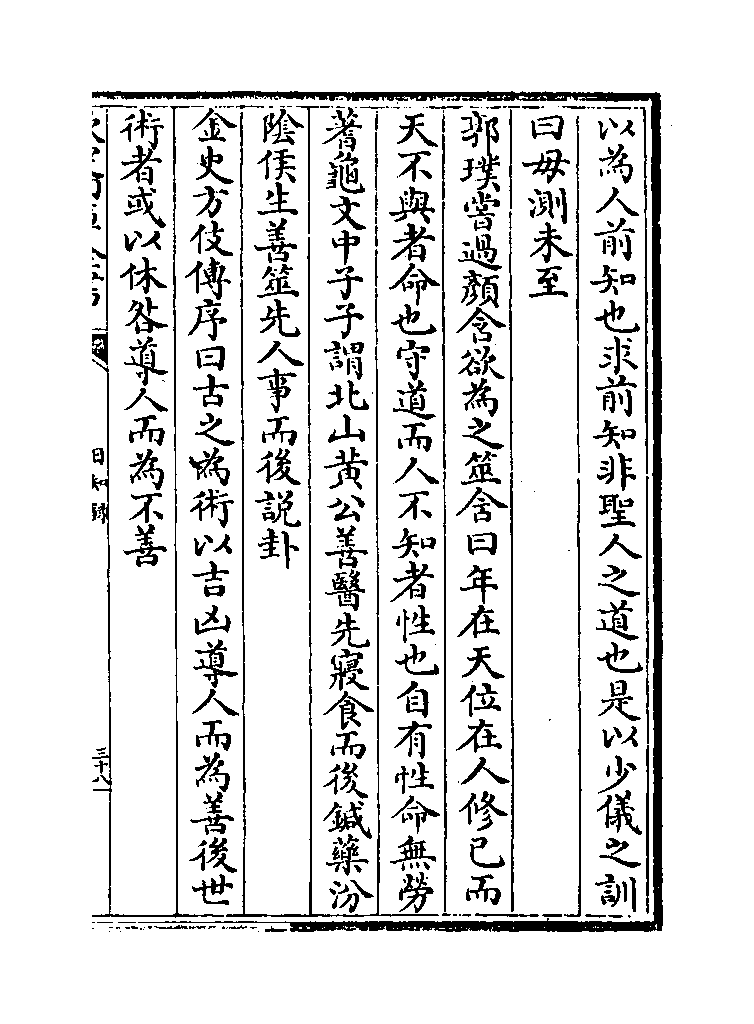 以為人前知也求前知非聖人之道也是以少儀之訓
曰毋測未至
郭璞嘗過顏含欲為之筮含曰年在天位在人修己而
天不與者命也守道而人不知者性也自有性命無勞
蓍龜文中子子謂北山黃公善醫先寢食而後鍼藥汾
陰侯生善筮先人事而後說卦
金史方伎傳序曰古之為術以吉凶導人而為善後世
術者或以休咎導人而為不善
日知錄
三十八